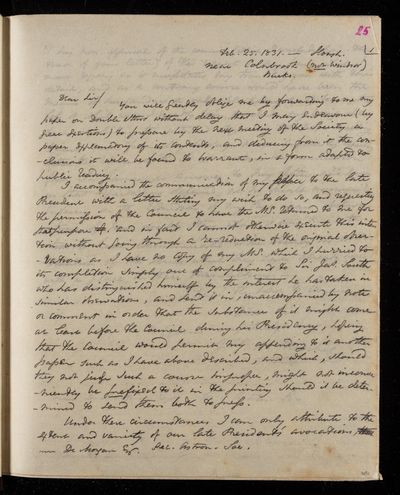 25
1
Feb. 25. 1831. — Slough.
near Colnbrook (not Windsor)
Bucks.
Dear Sir/
You will greatly oblige me by forwarding to me my
paper on Double Stars without delay that I may endeavour (by
dear exertions) to prepare by the next meeting of the Society a
paper explanatory of its contents, and deducing from it the con-
-clusions it will be found to warrant, in a form adapted to
public reading.
I accompanied the communication of my paper to the late
President with a letter stating my wish to do so, and requesting
the permission of the Council to have the M.S. returned to me for
that purpose, and in fact I cannot otherwise execute this inten-
tion without going through a re-reduction of the original obser-
-vations as I have no copy of my MS. which I hurried to
its completion simply out of compliment to Sir Jas. South
who has distinguished himself by the interest he has taken in
similar observations, and sent it in, unaccompanied by note
or comment in order that the substance of it might come
at least before the Council during his Presidency, hoping
that the Council would permit my appending to it another
paper such as I have above described, and which, should
they not judge such a course improper, might not inconve-
-niently be prefixed to it in the printing should it be deter-
-mined to send them both to press.
Under these circumstances I can only attribute to the
extent and variety of our late President's avocations,
De Morgan Esq. Sec. Astron. Soc.